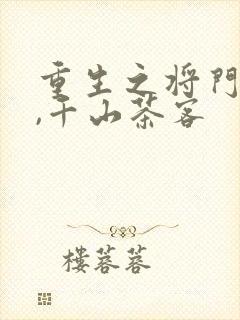 重生之将門
,千山茶客
樓蓉蓉